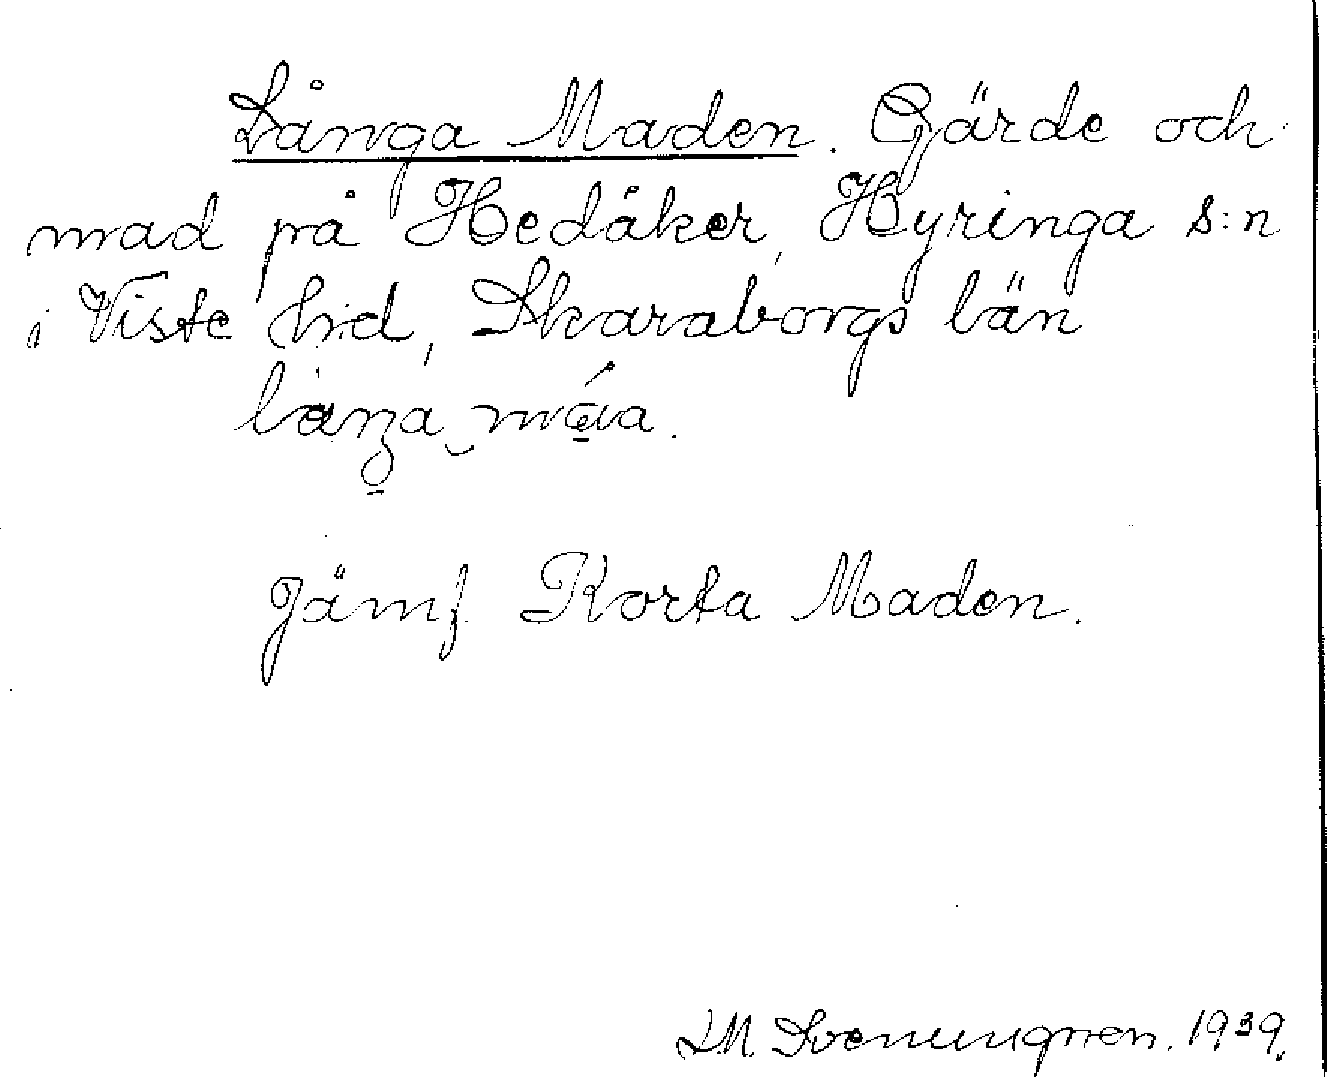 Långa Maden. Gärde och
mad på Hedåker, Hyringa s:n
i Viste hd, Skaraborgs län
Jämf. Korta Maden.
1939.